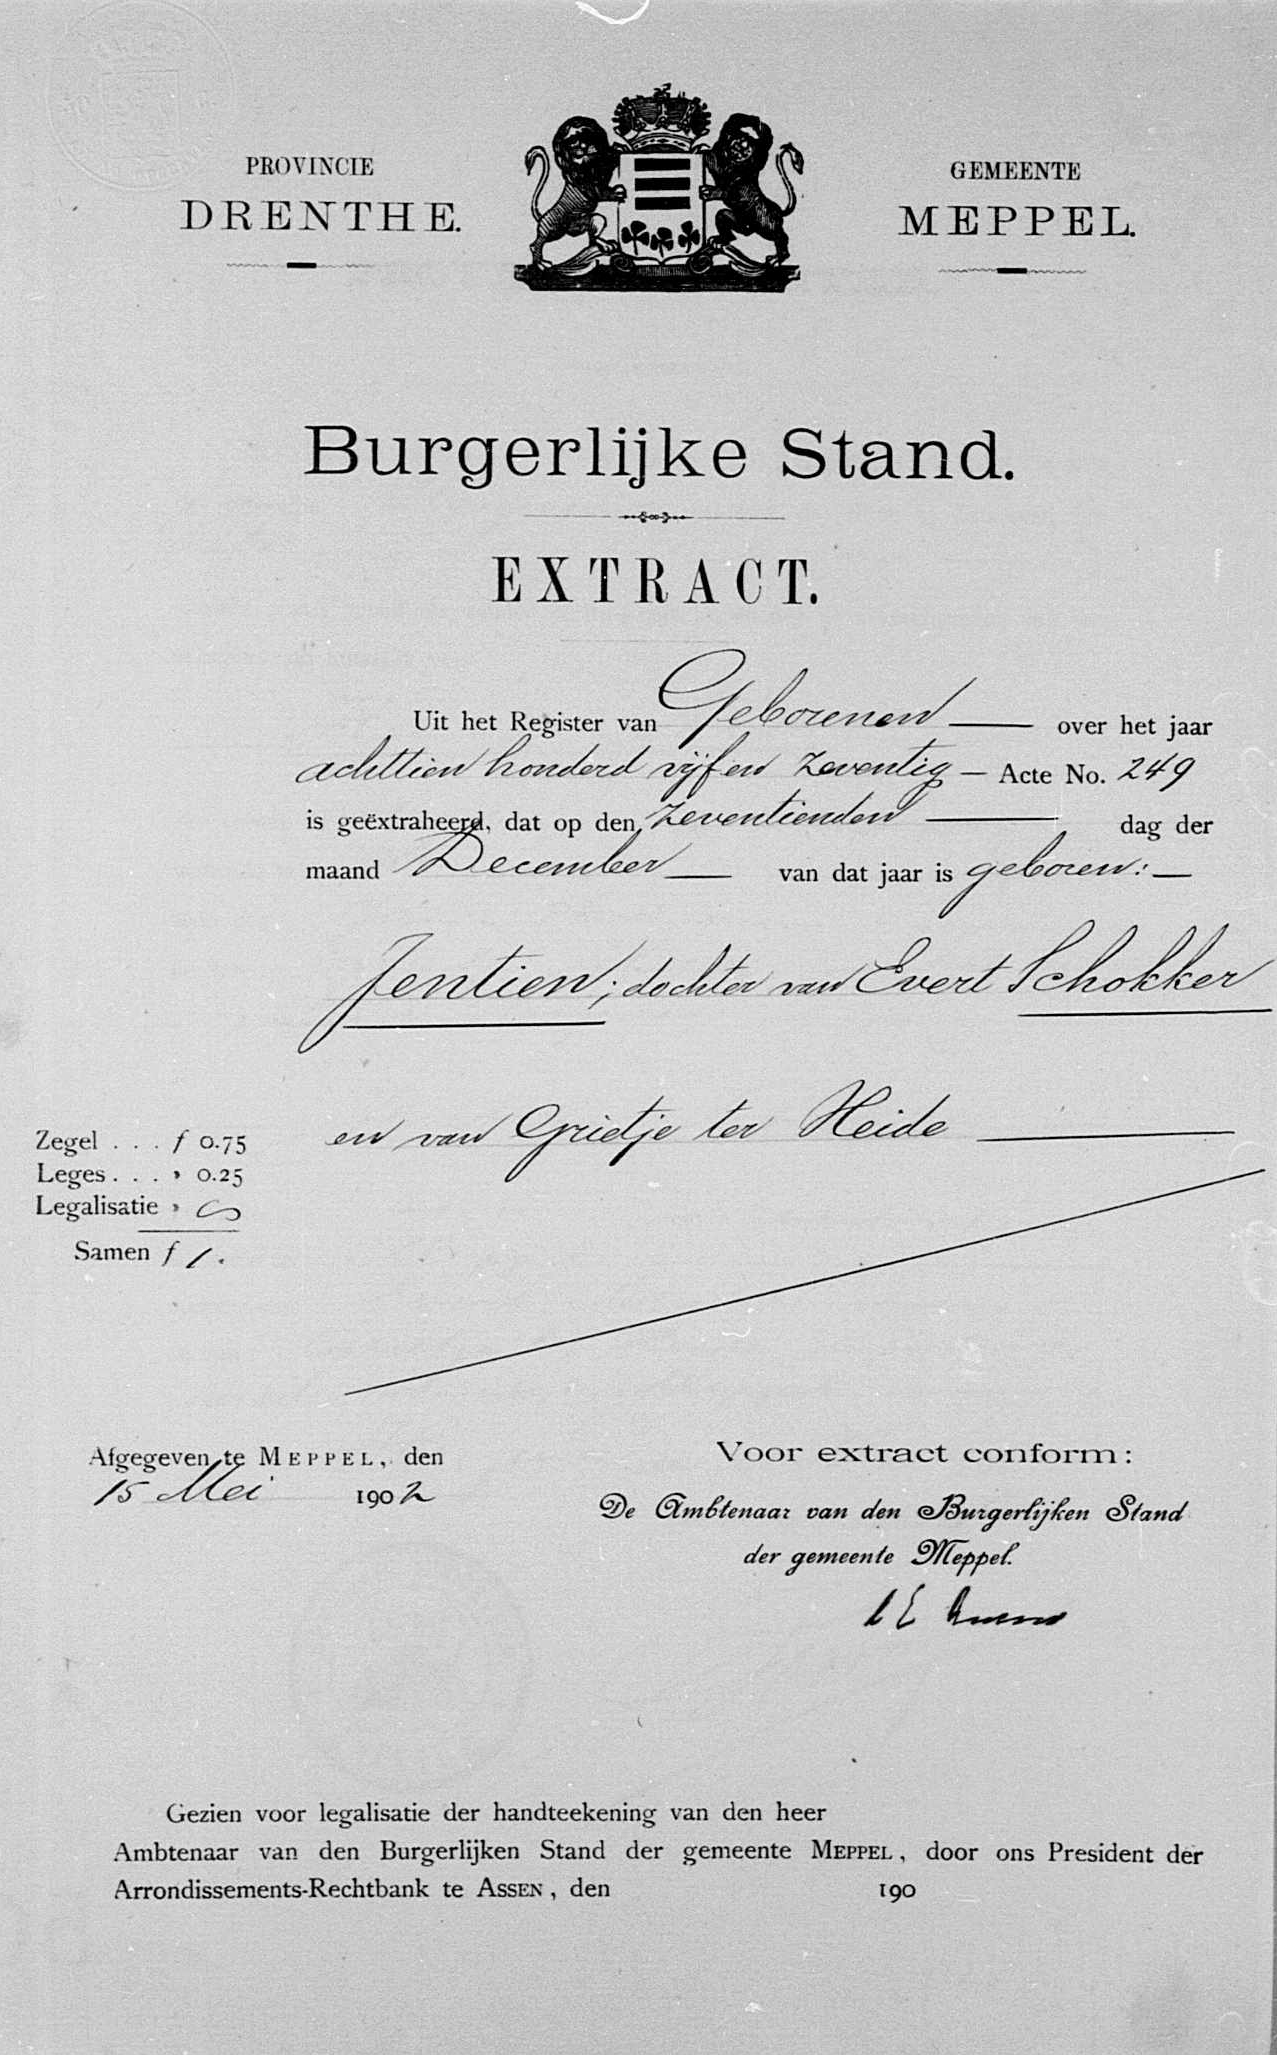 PROVINCIE
DRENTHE.
GEMEENTE
MEPPEL.
Burgerlijke Stand.
EXTRACT.
Uit het Register van Geborenen — over het jaar
achttien honderd vijf en zeventig — Acte No. 249
is geëxtraheerd, dat op den zeventienden — dag der
maand December — van dat jaar is geboren: —
Jentien; dochter van Evert Schokker
en van Grietje ter Heide —
Zegel . . . f 0.75
Leges . . . » 0.25
Legalisatie »
Samen f 1.
Afgegeven te MEPPEL, den
15 Mei 1902
Voor extract conform:
De Ambtenaar van den Burgerlijken Stand
der gemeente Meppel.
Gezien voor legalisatie der handteekening van den heer
Ambtenaar van den Burgerlijken Stand der gemeente MEPPEL, door ons President der
Arrondissements-Rechtbank te ASSEN, den 190